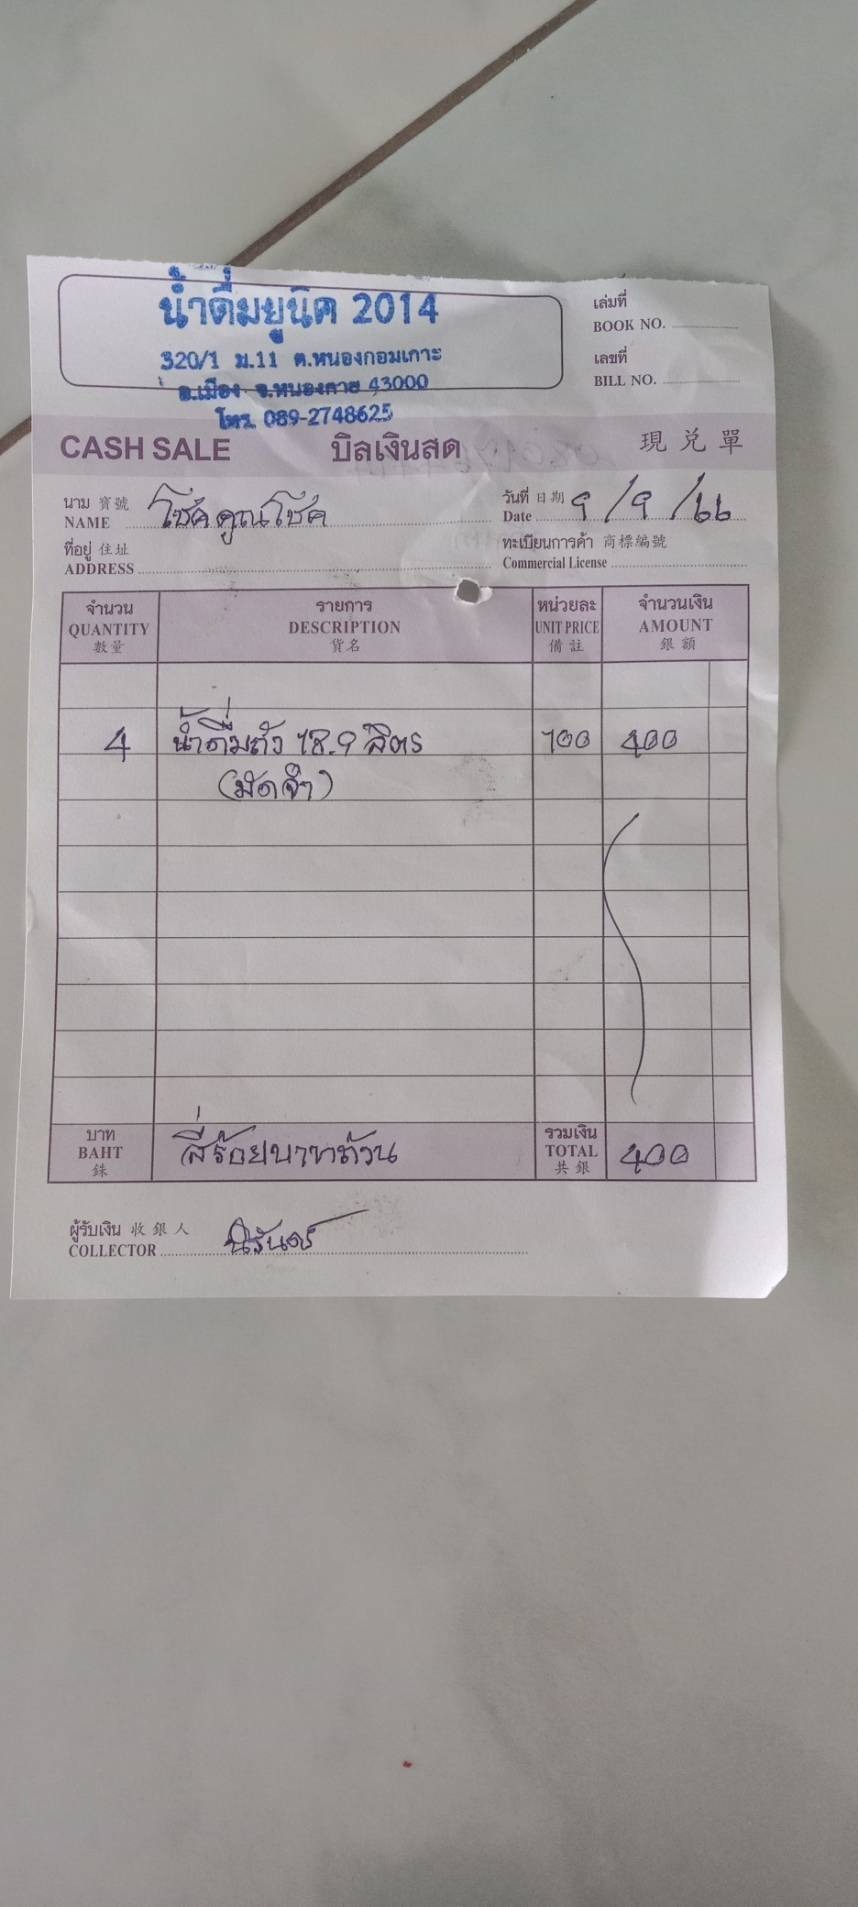 น้ำดื่มยูนิค 2014
320/1 ม.11 ต.หนองกอมเกาะ
อ.เมือง จ.หนองคาย 43000
โทร. 089-2748625
เล่มที่
BOOK NO.
เลขที่
BILL NO.
CASH SALE บิลเงินสด 現兑單
นาม 寳號 วันที่ 日期
NAME โชคคูณโชค Date 9/9/66
ที่อยู่ 住址 ทะเบียนการค้า 商標編號
ADDRESS Commercial License
จำนวน รายการ หน่วยละ จำนวนเงิน
QUANTITY DESCRIPTION UNIT PRICE AMOUNT
數量 貨名 備註 銀額
4 น้ำดื่มถัง 18.9 ลิตร 100 400
(มัดจำ)
บาท รวมเงิน
BAHT สี่ร้อยบาทถ้วน TOTAL 400
銖 共銀
ผู้รับเงิน 收銀人
COLLECTOR